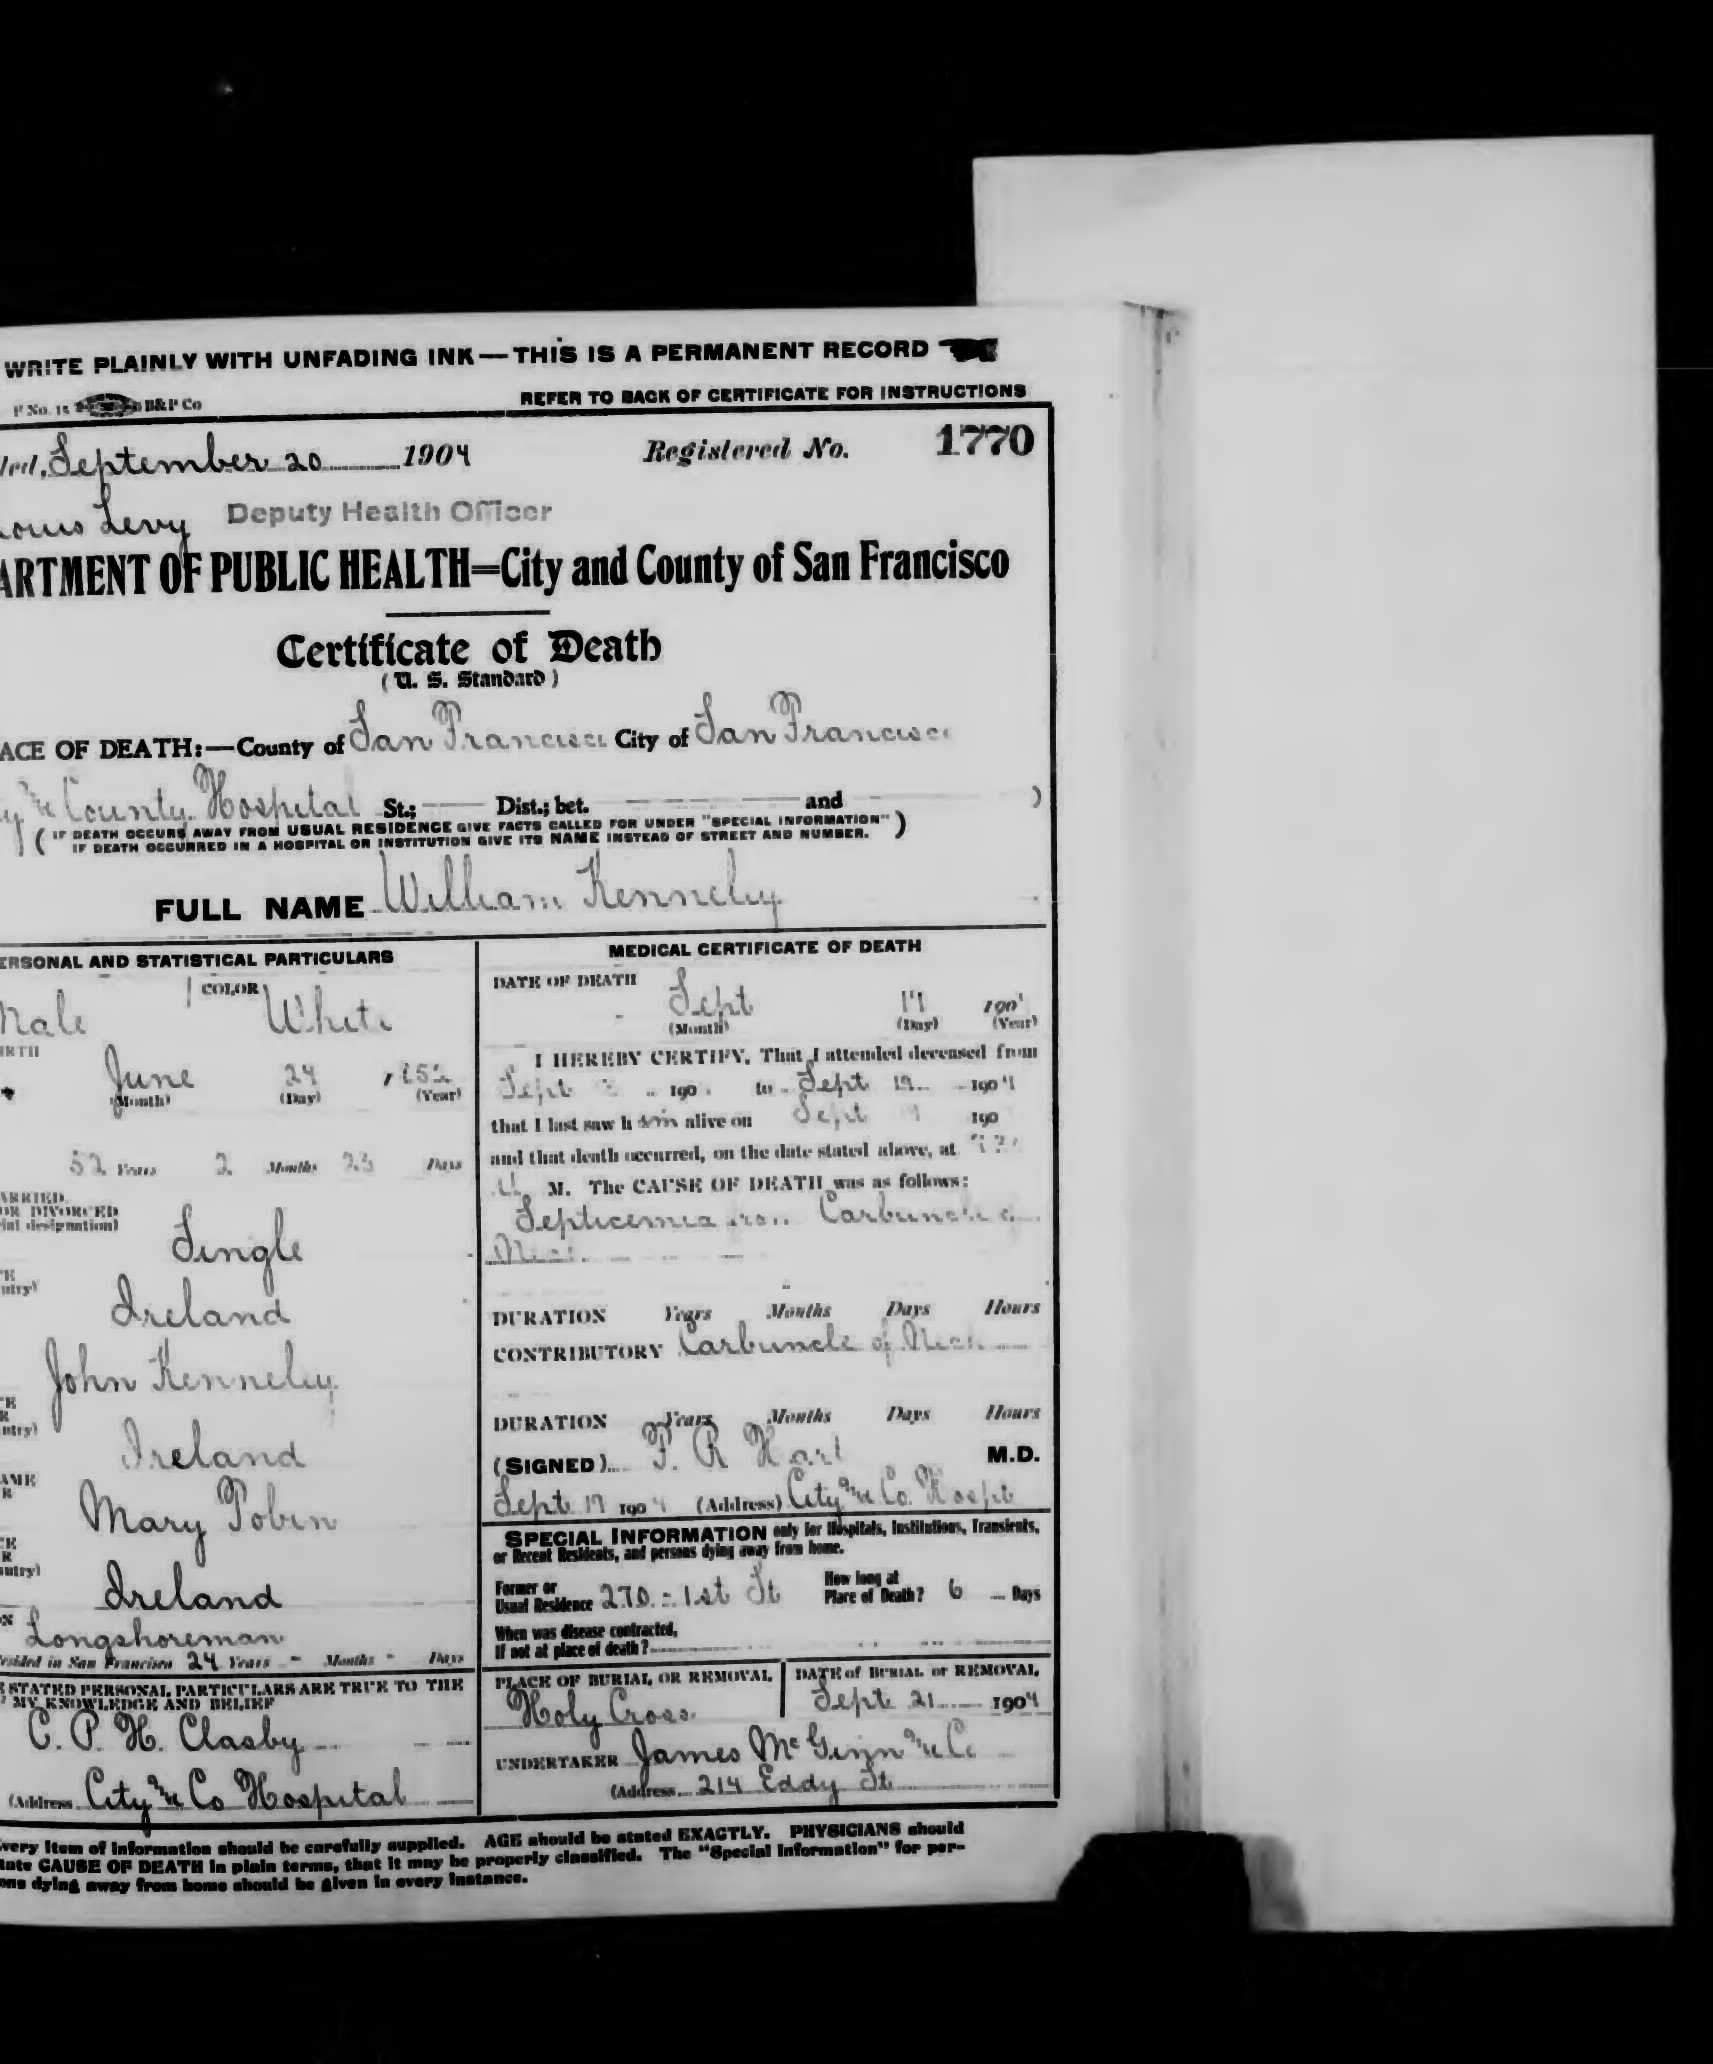 WRITE PLAINLY WITH UNFADING INK — THIS IS A PERMANENT RECORD
P No. 15 B&P Co
REFER TO BACK OF CERTIFICATE FOR INSTRUCTIONS
led, September 20 1904 Registered No. 1770
Louis Levy Deputy Health Officer
ARTMENT OF PUBLIC HEALTH=City and County of San Francisco
Certificate of Death
(U. S. Standard)
ACE OF DEATH:—County of San Francisco City of San Francisco
y & County Hospital St.; Dist.; bet. and )
( IF DEATH OCCURS AWAY FROM USUAL RESIDENCE GIVE FACTS CALLED FOR UNDER "SPECIAL INFORMATION" )
IF DEATH OCCURRED IN A HOSPITAL OR INSTITUTION GIVE ITS NAME INSTEAD OF STREET AND NUMBER.
FULL NAME William Kennely
ERSONAL AND STATISTICAL PARTICULARS
Male COLOR White
IRTH
June 24 , 1852
(Month) (Day) (Year)
52 Years 2 Months 23 Days
ARRIED,
OR DIVORCED
ial designation)
Single
CE
untry)
Ireland
John Kennely
CE
R
untry)
Ireland
AME
R
Mary Tobin
CE
R
untry)
Ireland
ON Longshoreman
esided in San Francisco 24 Years - Months - Days
E STATED PERSONAL PARTICULARS ARE TRUE TO THE
F MY KNOWLEDGE AND BELIEF
C. P. H. Clasby
(Address City & Co Hospital
MEDICAL CERTIFICATE OF DEATH
DATE OF DEATH
Sept 190
(Month) (Day) (Year)
I HEREBY CERTIFY, That I attended deceased from
Sept 190 to Sept 1904
that I last saw him alive on Sept 190
and that death occurred, on the date stated above, at
M. The CAUSE OF DEATH was as follows:
Septicemia from Carbuncle of
Neck
DURATION Years Months Days Hours
CONTRIBUTORY Carbuncle of Neck
DURATION Years Months Days Hours
(SIGNED) R Hart M.D.
Sept 1904 (Address) City & Co. Hospt
SPECIAL INFORMATION only for Hospitals, Institutions, Transients,
or Recent Residents, and persons dying away from home.
Former or
Usual Residence 270 - 1st St How long at
Place of Death? 6 Days
When was disease contracted,
If not at place of death?
PLACE OF BURIAL OR REMOVAL DATE of BURIAL or REMOVAL
Holy Cross Sept 21 1904
UNDERTAKER James McGinn & Co
(Address 214 Eddy St
very item of information should be carefully supplied. AGE should be stated EXACTLY. PHYSICIANS should
tate CAUSE OF DEATH in plain terms, that it may be properly classified. The "Special Information" for per-
ons dying away from home should be given in every instance.